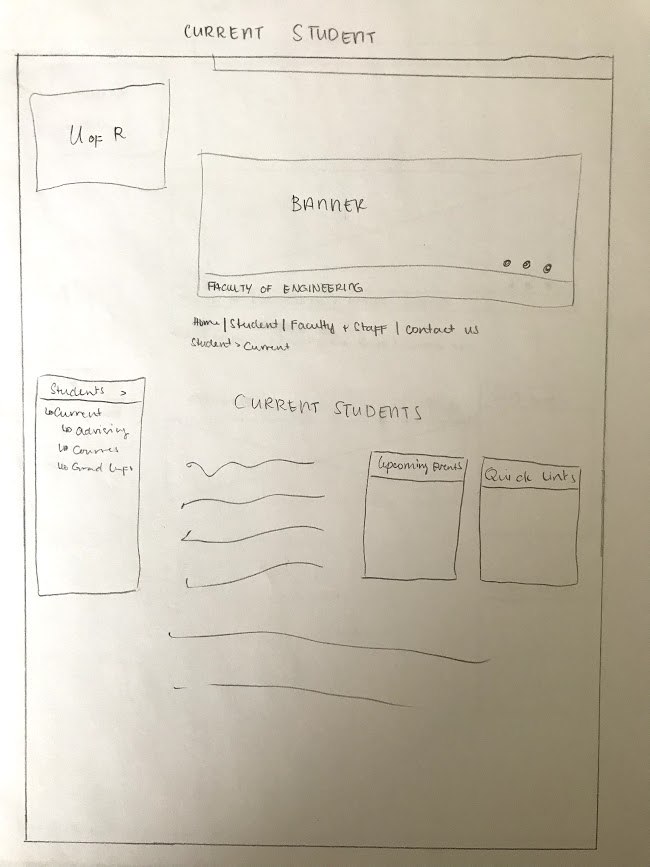 CURRENT STUDENT
U OF R
BANNER
FACULTY OF ENGINEERING
Home | Student | Faculty + Staff | contact us
Student > Current
Students >
Current
advising
Courses
Grad
CURRENT STUDENTS
Upcoming Events
Quick Links